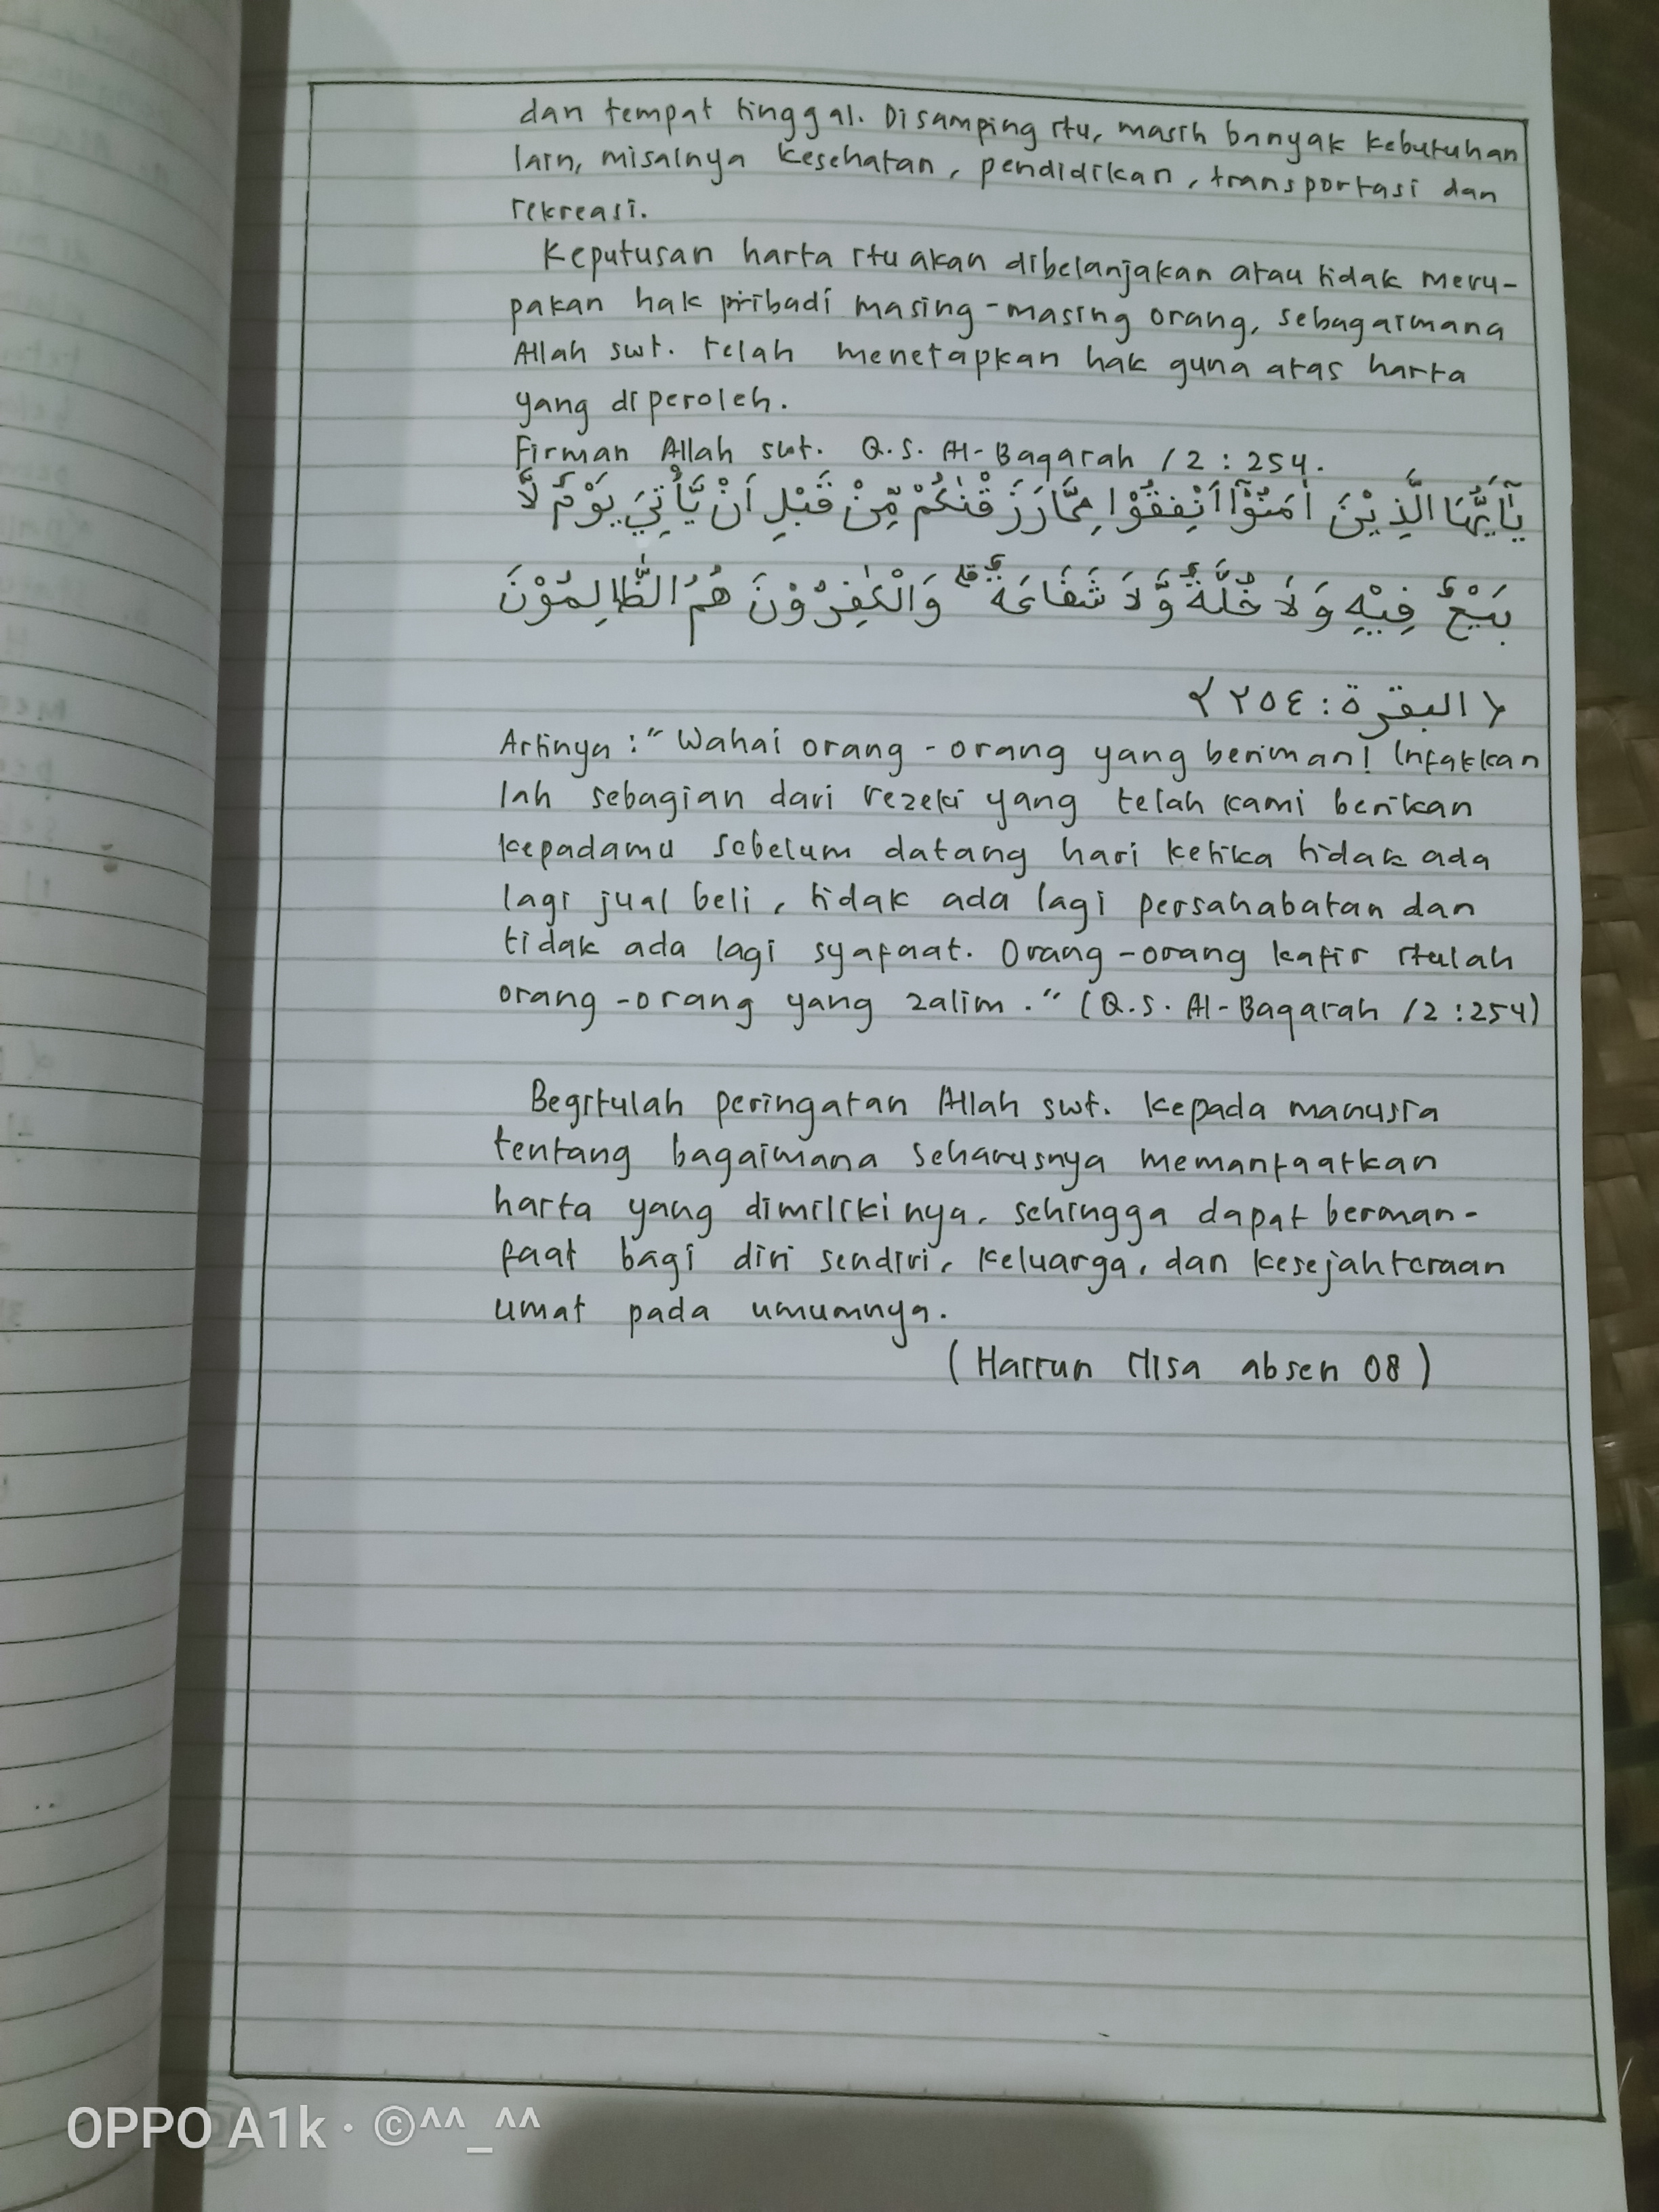 dan tempat tinggal. Disamping itu, masih banyak kebutuhan
lain, misalnya kesehatan, pendidikan, transportasi dan
rekreasi.
Keputusan harta itu akan dibelanjakan atau tidak meru-
pakan hak pribadi masing-masing orang, sebagaimana
Allah swt. telah menetapkan hak guna atas harta
yang diperoleh.
Firman Allah swt. Q.S. Al-Baqarah /2 : 254.
يٰٓاَيُّهَا الَّذِيْنَ اٰمَنُوْٓا اَنْفِقُوْا مِمَّا رَزَقْنٰكُمْ مِّنْ قَبْلِ اَنْ يَّأْتِيَ يَوْمٌ لَّا
بَيْعٌ فِيْهِ وَلَا خُلَّةٌ وَّلَا شَفَاعَةٌ ۗ وَالْكٰفِرُوْنَ هُمُ الظّٰلِمُوْنَ
﴿البقرة : ٢٥٤﴾
Artinya : "Wahai orang-orang yang beriman! Infakkan
lah sebagian dari rezeki yang telah kami berikan
kepadamu sebelum datang hari ketika tidak ada
lagi jual beli, tidak ada lagi persahabatan dan
tidak ada lagi syafaat. Orang-orang kafir itulah
orang-orang yang zalim." (Q.S. Al-Baqarah /2 : 254)
Begitulah peringatan Allah swt. kepada manusia
tentang bagaimana seharusnya memanfaatkan
harta yang dimilikinya, sehingga dapat berman-
faat bagi diri sendiri, keluarga, dan kesejahteraan
umat pada umumnya.
( absen 08 )
OPPO A1k · ©^^_^^